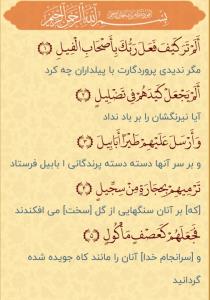 بِسْمِ اللَّهِ الرَّحْمَٰنِ الرَّحِيمِ
أَلَمْ تَرَ كَيْفَ فَعَلَ رَبُّكَ بِأَصْحَابِ الْفِيلِ ﴿١﴾
مگر ندیدی پروردگارت با پیلداران چه کرد
أَلَمْ يَجْعَلْ كَيْدَهُمْ فِي تَضْلِيلٍ ﴿٢﴾
آیا نیرنگشان را بر باد نداد
وَأَرْسَلَ عَلَيْهِمْ طَيْرًا أَبَابِيلَ ﴿٣﴾
و بر سر آنها دسته دسته پرندگانی ا بابیل فرستاد
تَرْمِيهِمْ بِحِجَارَةٍ مِنْ سِجِّيلٍ ﴿٤﴾
[که] بر آنان سنگهایی از گل [سخت] می افکندند
فَجَعَلَهُمْ كَعَصْفٍ مَأْكُولٍ ﴿٥﴾
و [سرانجام خدا] آنان را مانند کاه جویده شده
گردانید